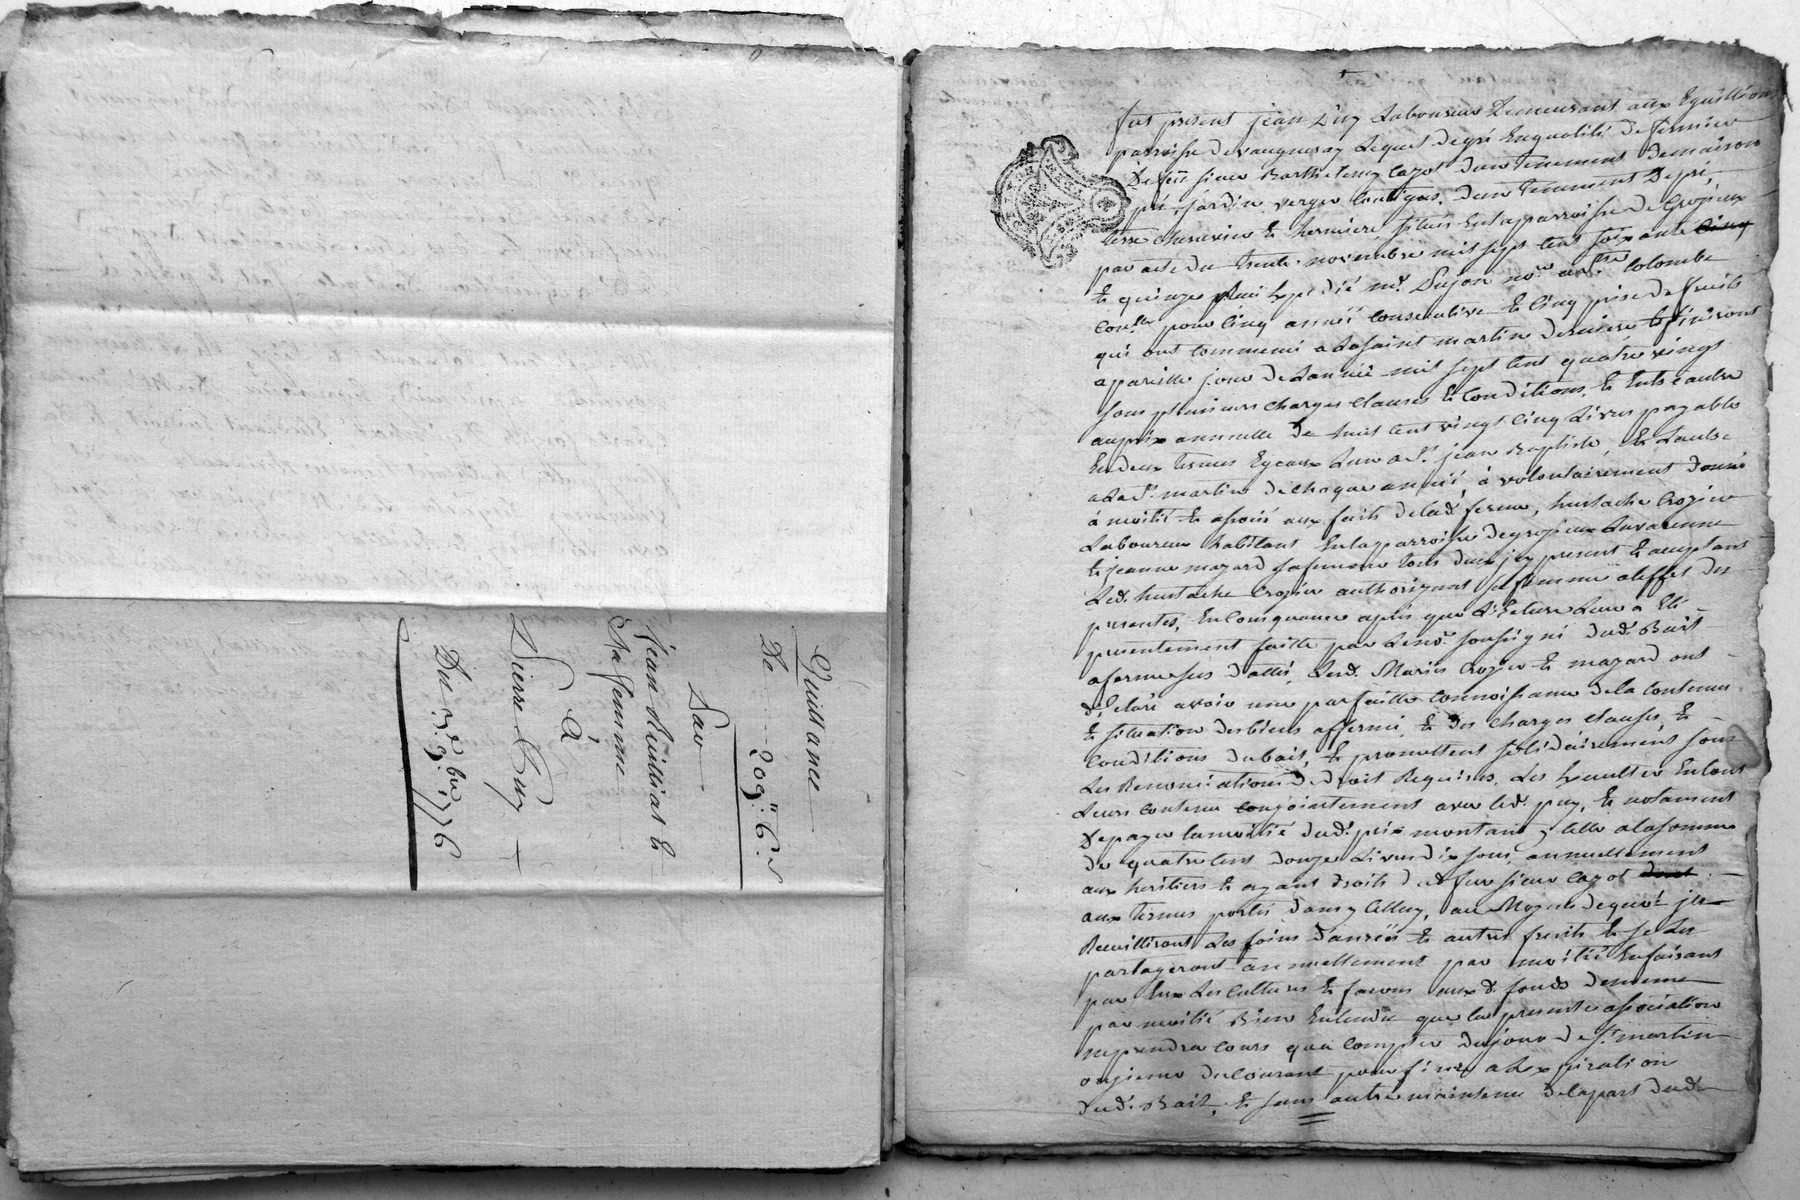 Quittance
De - - - 209" 6. s
Par
Jean Thuilliat &
Sa femme
à
Pierre Guy
Du 3. 9.bre 1776
fut present jean Puy Laboureur Demeurant aux Eguillions
parroisse devaugneray Lequel degré Enqualité defermier
Defeu sieur Barthelemy Cayot dun tenement demaison
pré, jardin verger Contigus, dun tenement Depré,
terre cheneviere & hermiere situés Enlapparroisse De Grezieux
par acte du trente novembre mil sept cent soixante cinq
& quinze Expedié Me. Dujon nore. a Ste Colombe
pour Cinq années Consecutive & Cinq prise defruits
qui ont Commencé alasaint martin derniere & finiront
apareille jour delannée mil sept cent quatre vingt
sous plusieurs charges clauses & Conditions, & Entre autre
auprix annuelle De huit cent vingt Cinq Livres payable
Endeux termes Egeaux Lun a St. jean Baptiste, & Lautre
ala St. martin dechaque année, à volontairement donné
à moitié & associé aux faits delad. ferme, heustache Crozier
Laboureur habitant Enlapparroisse degrezieux Lavarenne
& jeanne mazard safemme tous deux jcy present & acceptant
Led. heustache Crozier authorizant sa femme aleffet des
presentes, En Consequence après que Lecture Leur a Eté
presentement faitte par Lenore. soussigné dud. Bail
aferme sus datté, Lesd. Mariés Crozier & mazard ont
déclaré avoir une parfaitte Connoissance dela Contenue
& situation desbiens affermé, & des charges clauses, &
Conditions dubail, & promettent solidairement sous
Les Renonciations de droit Requises, Les Executter Entout
Leurs contenu conjointement avec led. puy, & notament
Depayer lamoitié dud. prix montant, celle alasomme
de quatre cent douze Livres dix sous, annuellement
aux heritiers & ayant droits dud feu sieur Cayot dont
aux termes portés dans jcelluy, au Moyen dequoi jls
Receuilliront Les foins danrées & autres fruits & se Les
partageront annuellement par moitié Enfaisant
par Eux Les Cultures & facons auxd. fonds dememe
par moitié Bien Entendu que la presente association
neprendra cours qua Compter dujour de St. martin
onzieme ducourant pour finir a Lexpiration
dud. Bail, & sans autre maintenue delapart dud